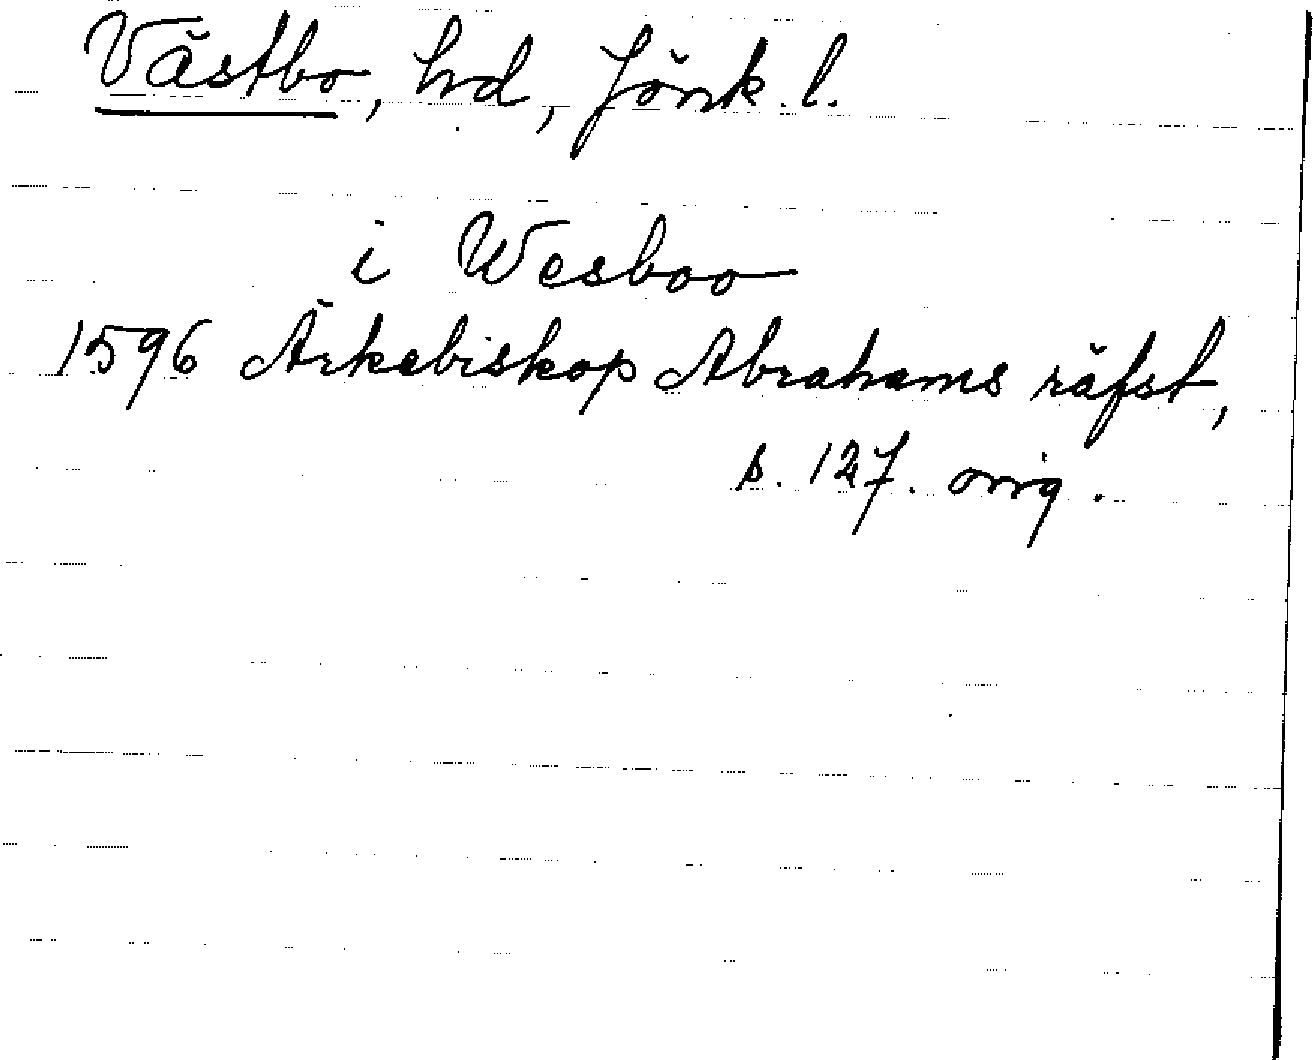 Västbo, hd, Jönk. l.
i Wesboo
1596 Ärkebiskop Abrahams räfst,
s. 127. orig.